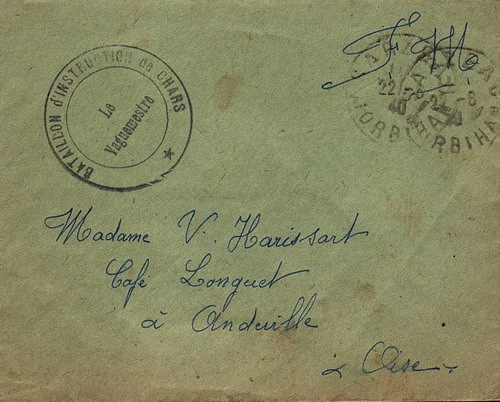 F. M.
BATAILLON d'INSTRUCTION de CHARS
Le
Vaguemestre
Madame V. Harissart
Café Longuet
à Andeville
Oise